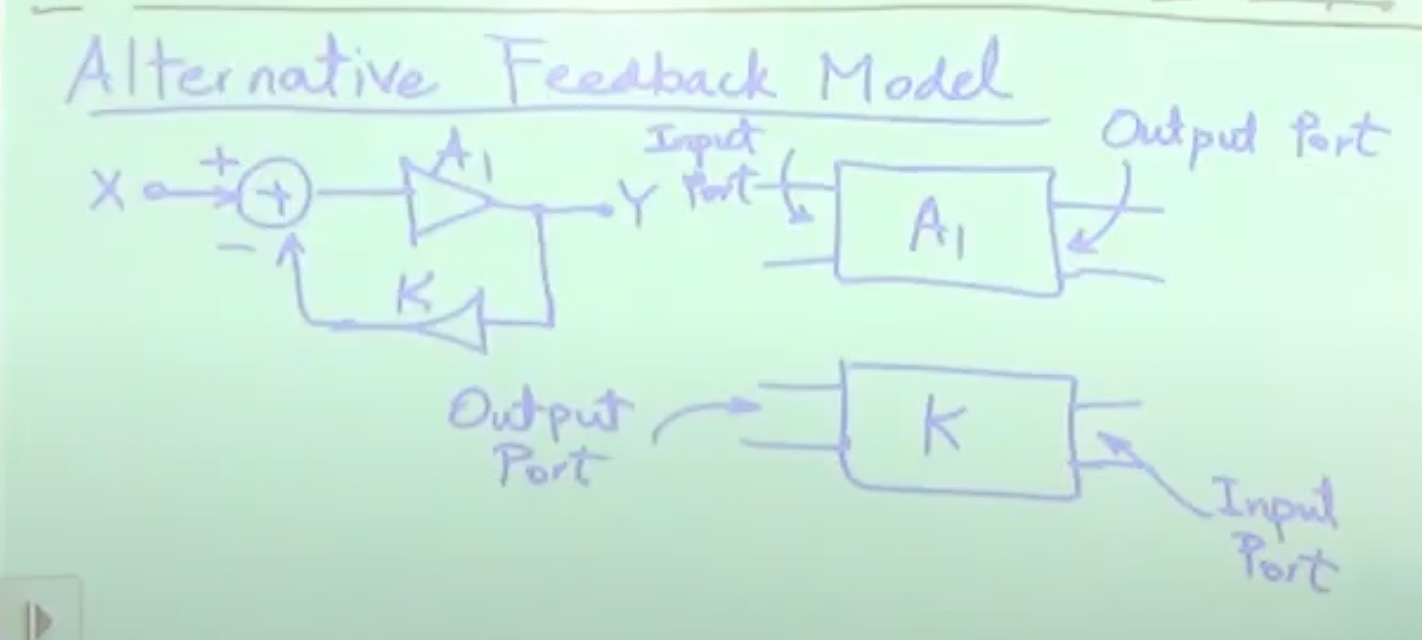 Alternative Feedback Model
X + + A1 Y
− K
Input Port
A1
Output Port
Output Port
K
Input Port